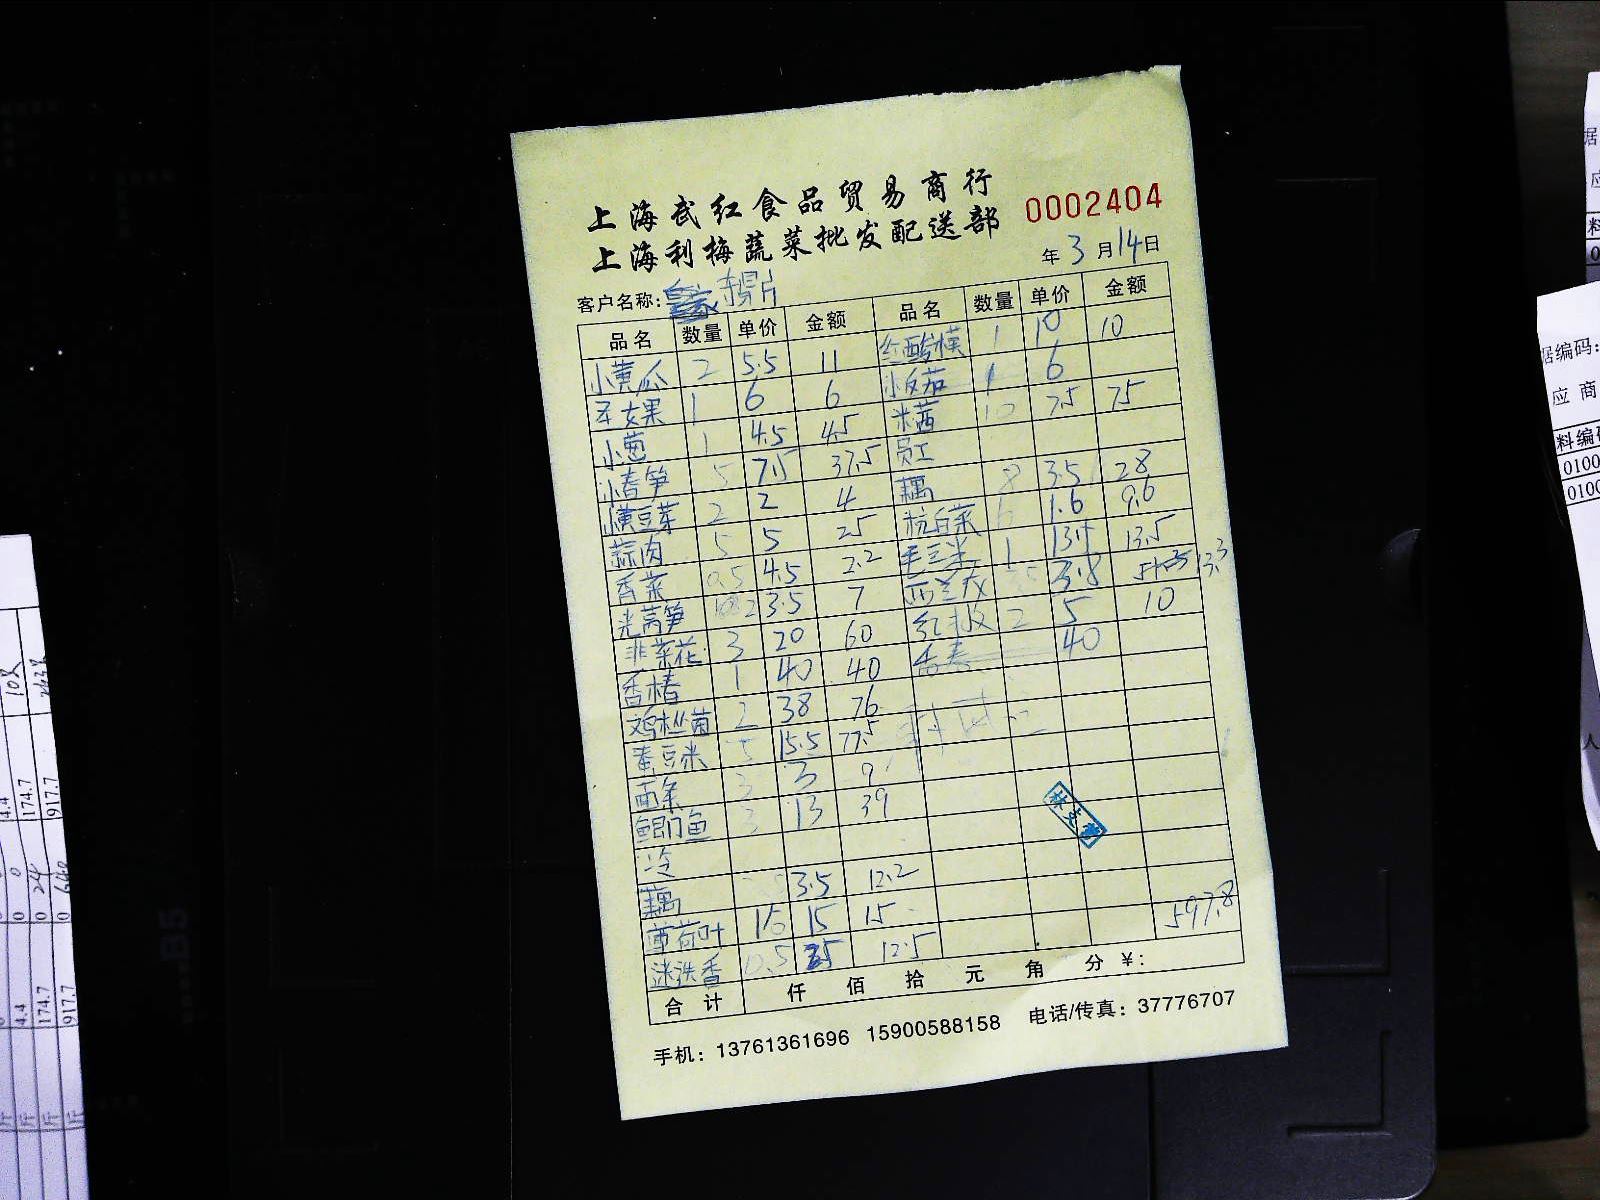 上海武红食品贸易商行
0002404
上海利梅蔬菜批发配送部
年 3 月 14 日
客户名称:
品名 数量 单价 金额 品名 数量 单价 金额
小黄瓜 2 5.5 11 红酸模 1 10 10
圣女果 1 6 6 小番茄 1 6
小葱 1 4.5 4.5 米苋 10 7.5 75
小春笋 5 7.5 37.5 员工
黄豆芽 2 2 4 藕 8 3.5 28
蒜肉 5 5 25 杭白菜 6 1.6 9.6
香菜 0.5 4.5 2.2 毛豆米 1 13.5 13.5
光莴笋 2 3.5 7 西兰花 3.5 3.8 13.3
韭菜花 3 20 60 红椒 2 5 10
香椿 1 40 40 香春 40
鸡枞菌 2 38 76
蚕豆米 5 15.5 77.5
面条 3 3 9
鲫鱼 3 13 39
冷
藕 3.5 12.2
薄荷叶 15 15
迷迭香 0.5 25 12.5
597.8
合计 仟 佰 拾 元 角 分 ¥:
手机: 13761361696 15900588158 电话/传真: 37776707
据编码:
应商
料编码
0100
0100
10又
4.4
174.7
917.7
0
24
648
B5